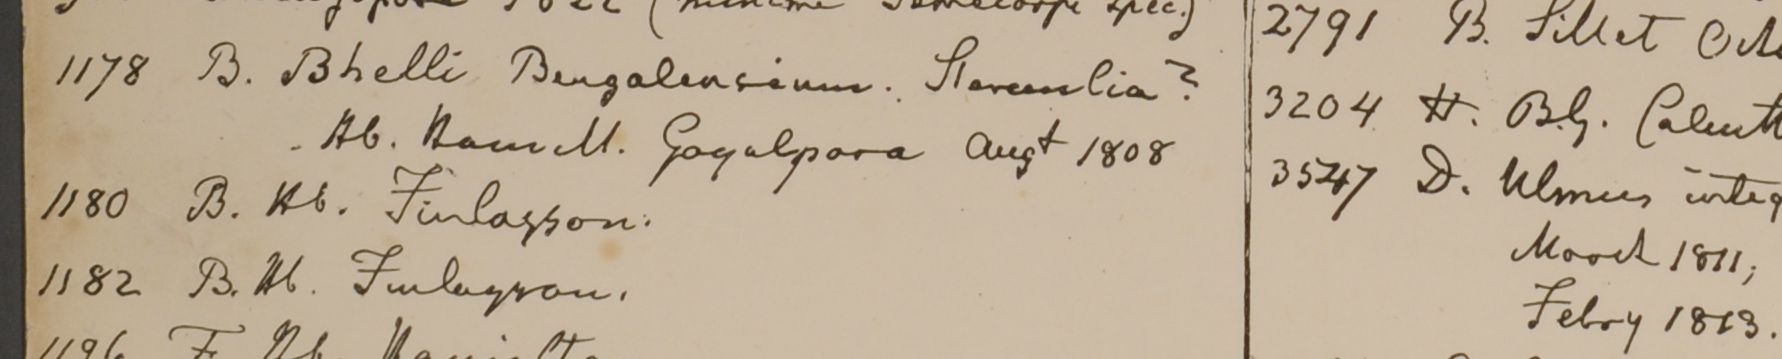 1822 (
1178 B. Bhelli Bengalensium. Sterculia?
Hb. Hamill. Goyalpara Augt 1808
1180 B. Hb. Finlayson.
1182 B. Hb. Finlayson.
1196 F. Hb.
2791 B. Sillet
3204 H. B.G. Calcutt
3547 D. Ulmus integ
March 1811;
Febry 1813.